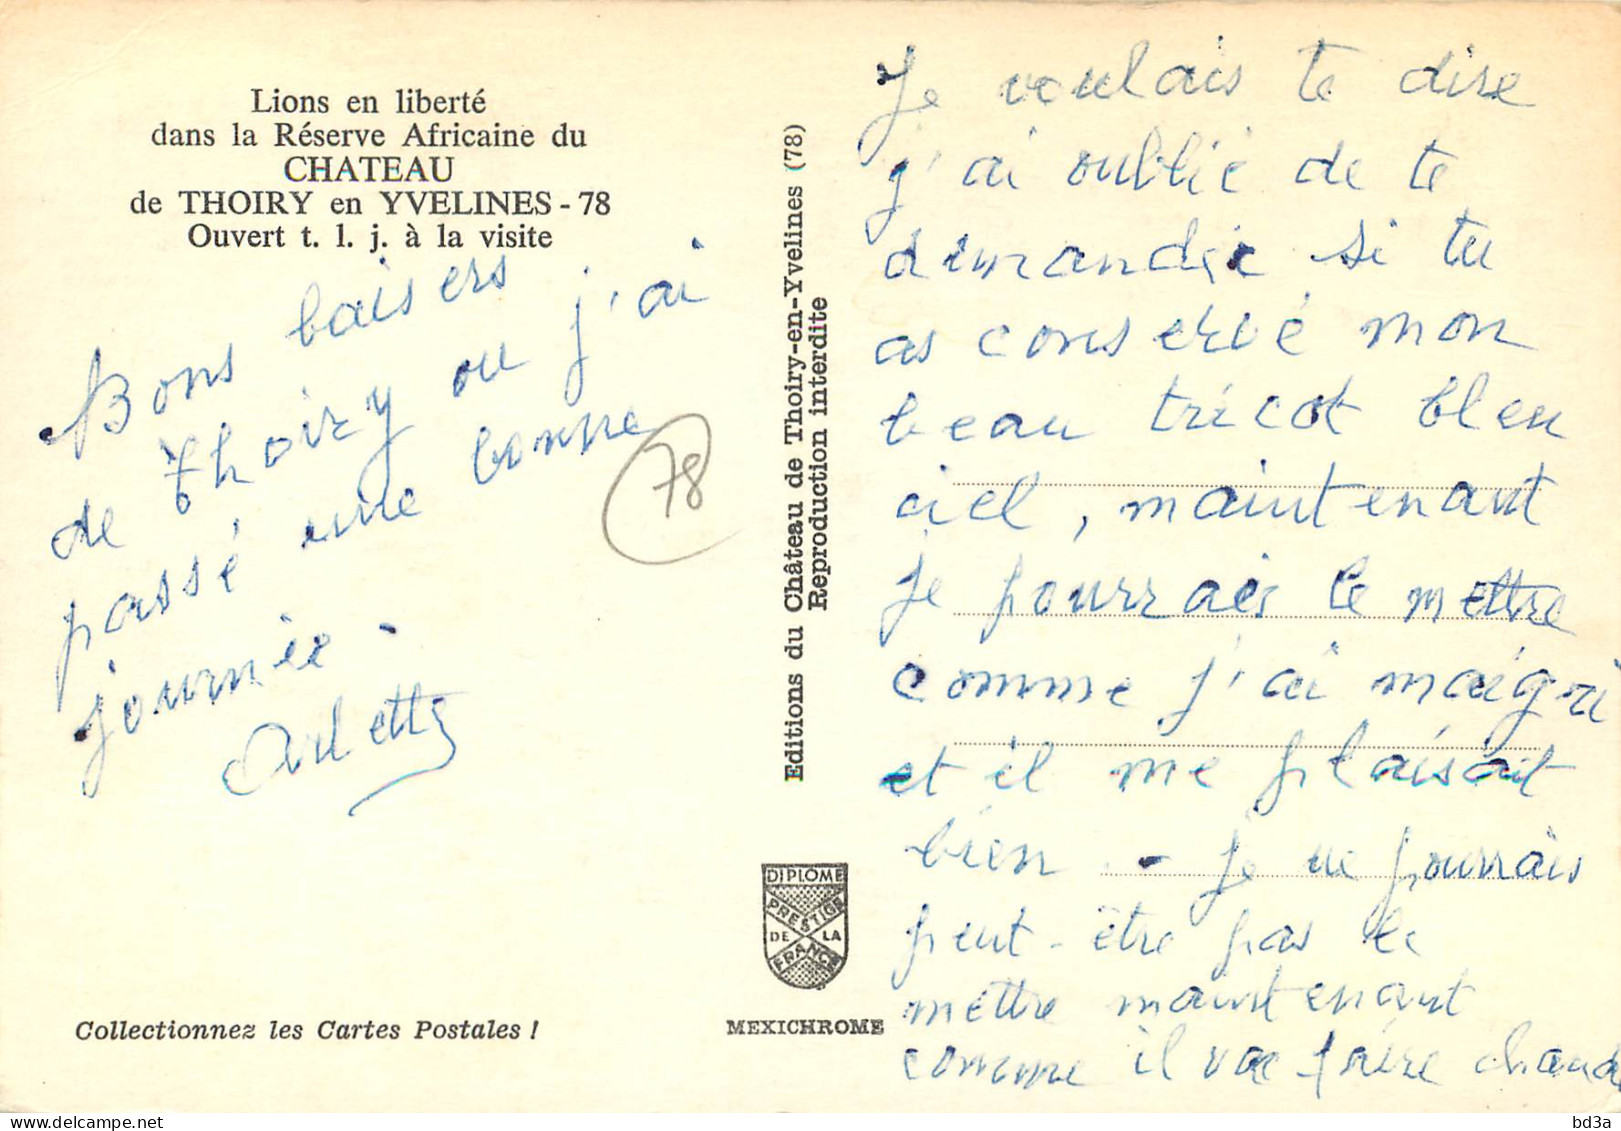 Lions en liberté
dans la Réserve Africaine du
CHATEAU
de THOIRY en YVELINES - 78
Ouvert t. l. j. à la visite
Bons baisers
de Thoiry ou j'ai
passé une bonne
journée.
Arlette
78
Collectionnez les Cartes Postales !
Editions du Château de Thoiry-en-Yvelines (78)
Reproduction interdite
DIPLOME
PRESTIGE
DE LA
FRANCE
MEXICHROME
Je voulais te dire
j'ai oublié de te
demander si tu
as conservé mon
beau tricot bleu
ciel, maintenant
je pourrais le mettre
comme j'ai maigri
et il me plaisait
bien - Je ne pourrais
peut-être pas le
mettre maintenant
comme il va faire chaud
bd3a